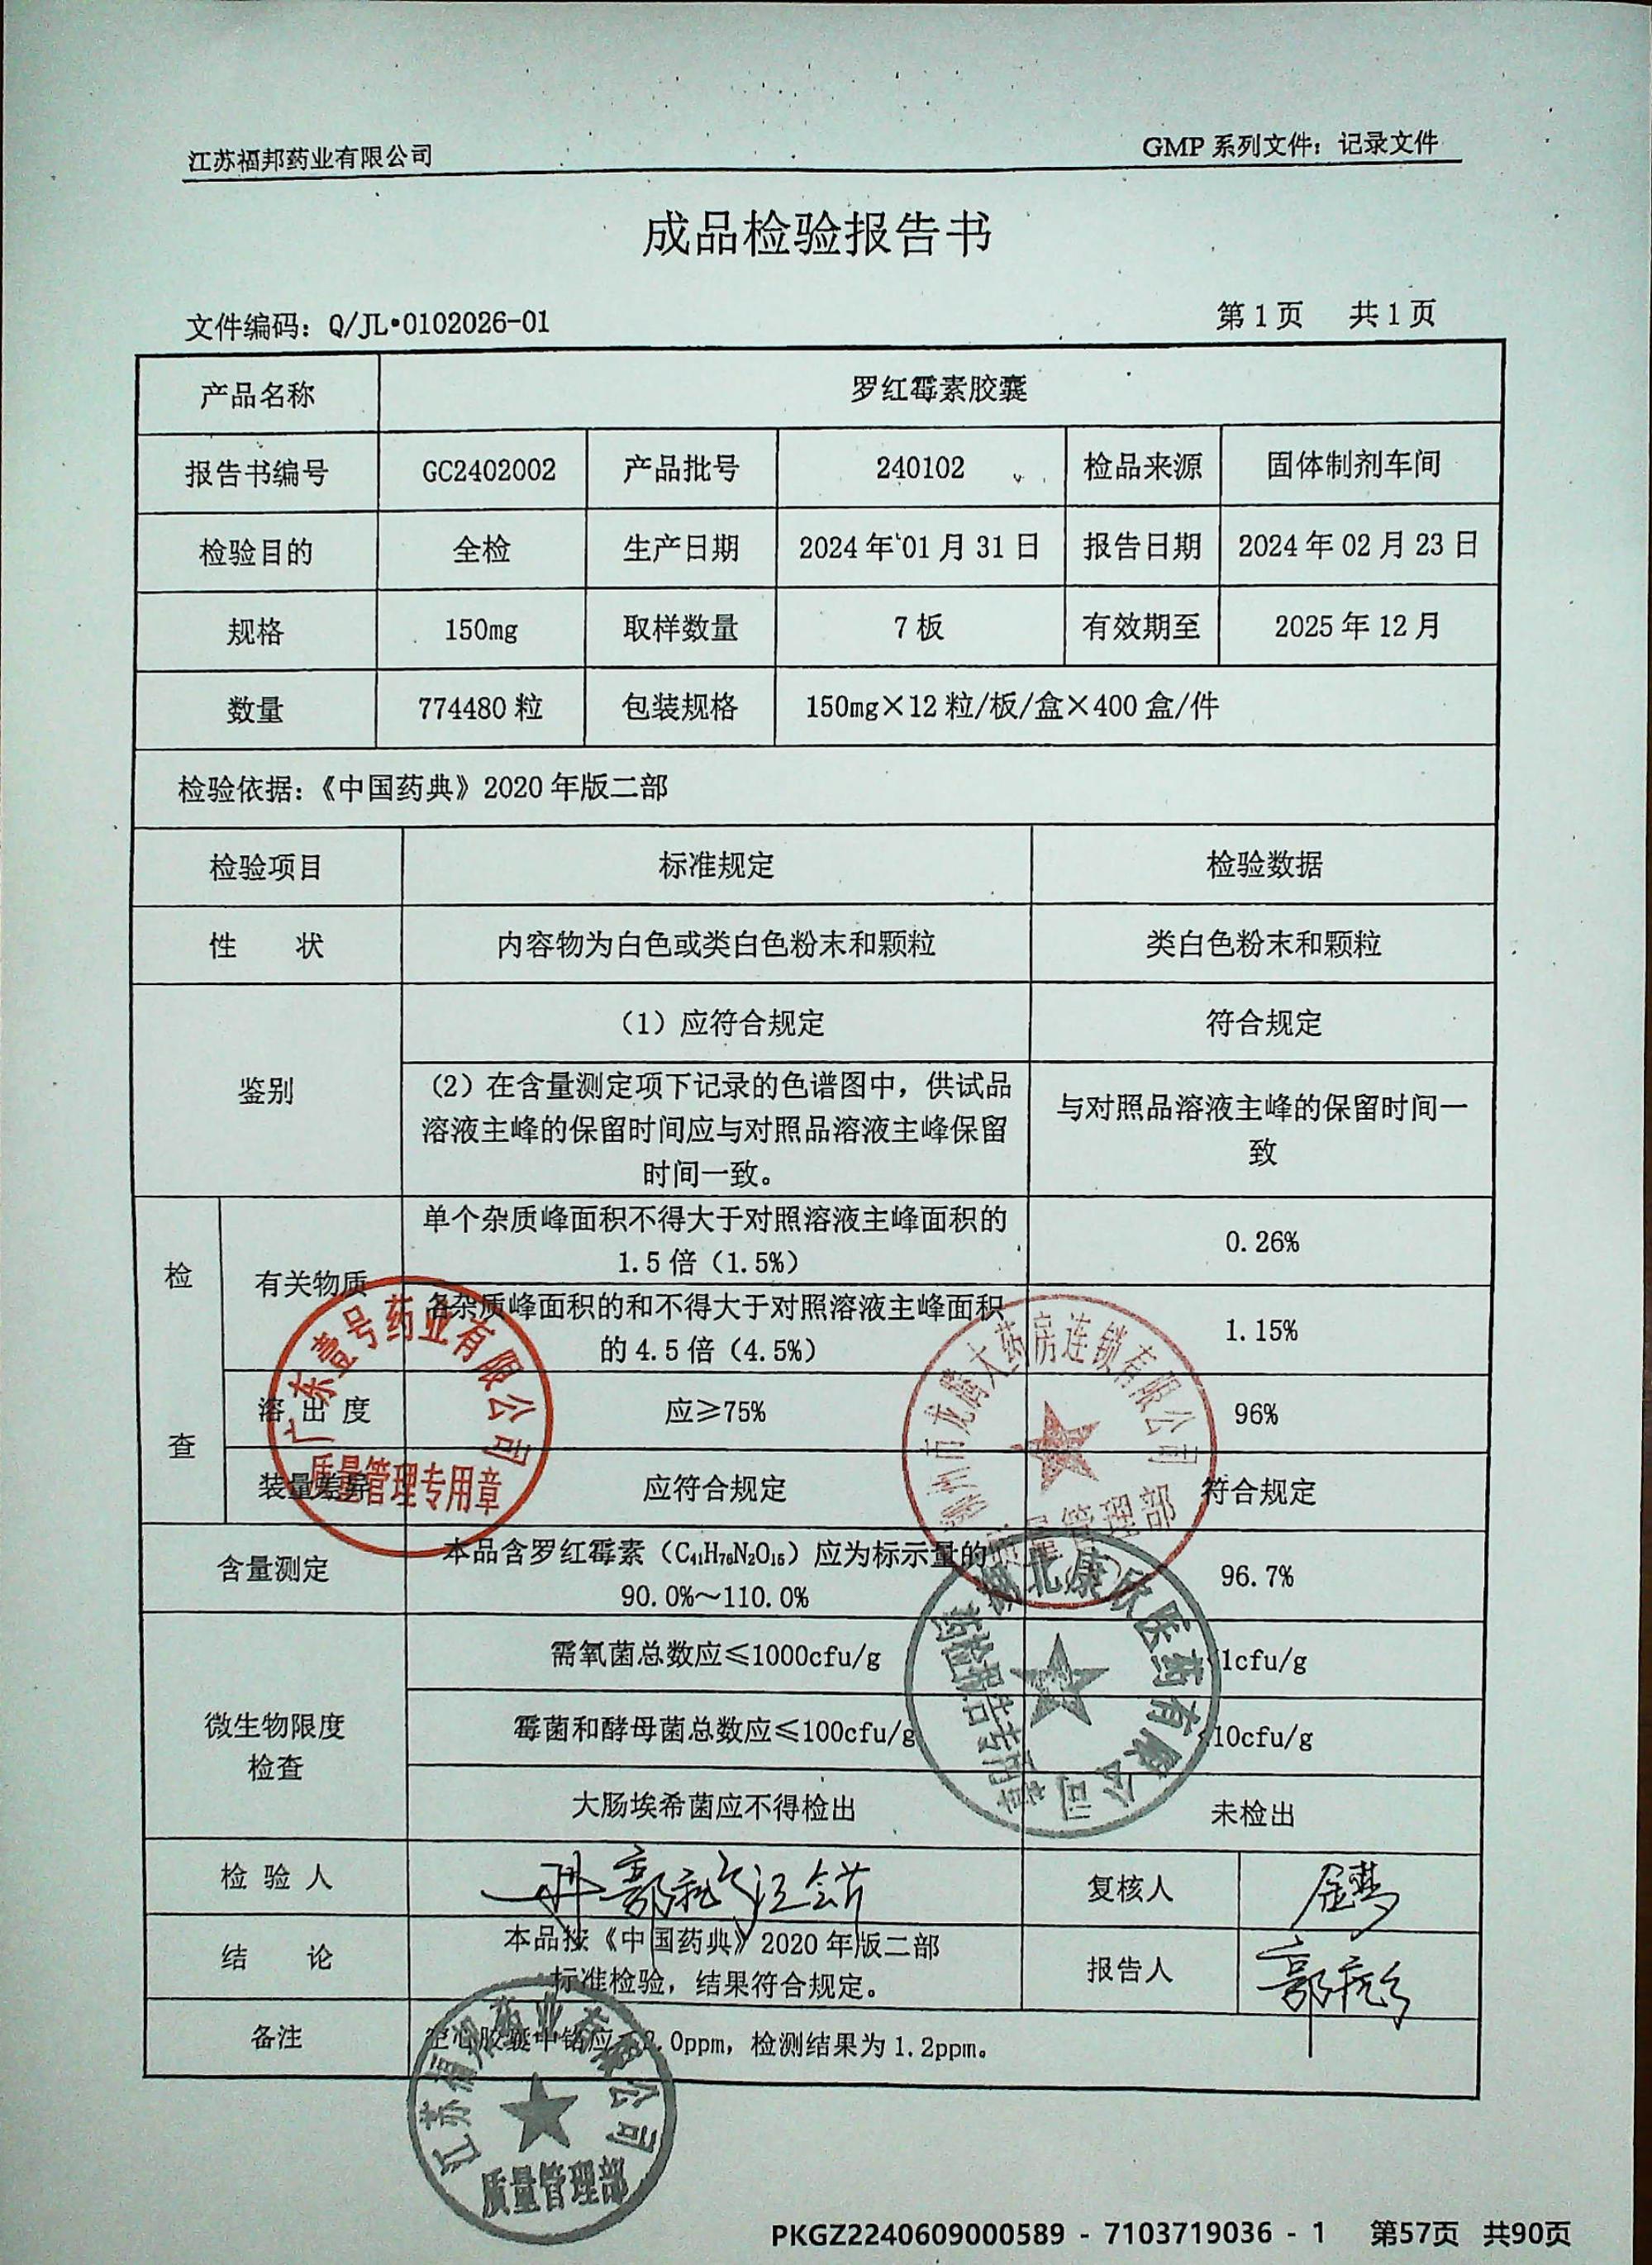 江苏福邦药业有限公司
GMP 系列文件：记录文件
成品检验报告书
文件编码：Q/JL•0102026-01
第 1 页 共 1 页
产品名称 罗红霉素胶囊
报告书编号 GC2402002 产品批号 240102 检品来源 固体制剂车间
检验目的 全检 生产日期 2024 年 01 月 31 日 报告日期 2024 年 02 月 23 日
规格 150mg 取样数量 7 板 有效期至 2025 年 12 月
数量 774480 粒 包装规格 150mg×12 粒/板/盒×400 盒/件
检验依据：《中国药典》2020 年版二部
检验项目 标准规定 检验数据
性 状 内容物为白色或类白色粉末和颗粒 类白色粉末和颗粒
鉴别
（1）应符合规定 符合规定
（2）在含量测定项下记录的色谱图中，供试品
溶液主峰的保留时间应与对照品溶液主峰保留
时间一致。
与对照品溶液主峰的保留时间一
致
检
查
有关物质
单个杂质峰面积不得大于对照溶液主峰面积的
1.5 倍（1.5%）
0.26%
各杂质峰面积的和不得大于对照溶液主峰面积
的 4.5 倍（4.5%）
1.15%
溶 出 度 应≥75% 96%
装量差异 应符合规定 符合规定
含量测定
本品含罗红霉素（C₄₁H₇₆N₂O₁₅）应为标示量的
90.0%～110.0%
96.7%
微生物限度
检查
需氧菌总数应≤1000cfu/g 1cfu/g
霉菌和酵母菌总数应≤100cfu/g 10cfu/g
大肠埃希菌应不得检出 未检出
检 验 人
复核人
结 论
本品按《中国药典》2020 年版二部
标准检验，结果符合规定。
报告人
备注 空心胶囊中铬应 2.0ppm，检测结果为 1.2ppm。
广东壹号药业有限公司
质量管理专用章
市龙腾大药房连锁有限公司
管理部
湖北康欣医药有限公司
药检报告专用章
江苏福邦药业有限公司
质量管理部
PKGZ2240609000589 - 7103719036 - 1 第57页 共90页